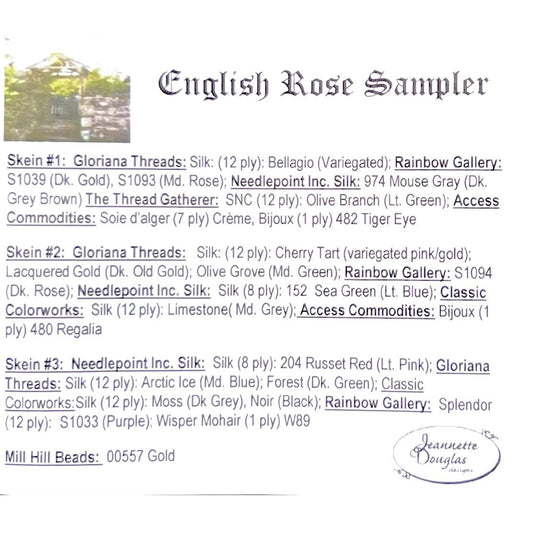 English Rose Sampler
Skein #1: Gloriana Threads: Silk: (12 ply): Bellagio (Variegated); Rainbow Gallery:
S1039 (Dk. Gold), S1093 (Md. Rose); Needlepoint Inc. Silk: 974 Mouse Gray (Dk.
Grey Brown) The Thread Gatherer: SNC (12 ply): Olive Branch (Lt. Green); Access
Commodities: Soie d'alger (7 ply) Crème, Bijoux (1 ply) 482 Tiger Eye
Skein #2: Gloriana Threads: Silk: (12 ply): Cherry Tart (variegated pink/gold);
Lacquered Gold (Dk. Old Gold); Olive Grove (Md. Green); Rainbow Gallery: S1094
(Dk. Rose); Needlepoint Inc. Silk: Silk (8 ply): 152 Sea Green (Lt. Blue); Classic
Colorworks: Silk (12 ply): Limestone( Md. Grey); Access Commodities: Bijoux (1
ply) 480 Regalia
Skein #3: Needlepoint Inc. Silk: Silk (8 ply): 204 Russet Red (Lt. Pink); Gloriana
Threads: Silk (12 ply): Arctic Ice (Md. Blue); Forest (Dk. Green); Classic
Colorworks:Silk (12 ply): Moss (Dk Grey), Noir (Black); Rainbow Gallery: Splendor
(12 ply): S1033 (Purple); Wisper Mohair (1 ply) W89
Mill Hill Beads: 00557 Gold
Jeannette
Douglas
designs